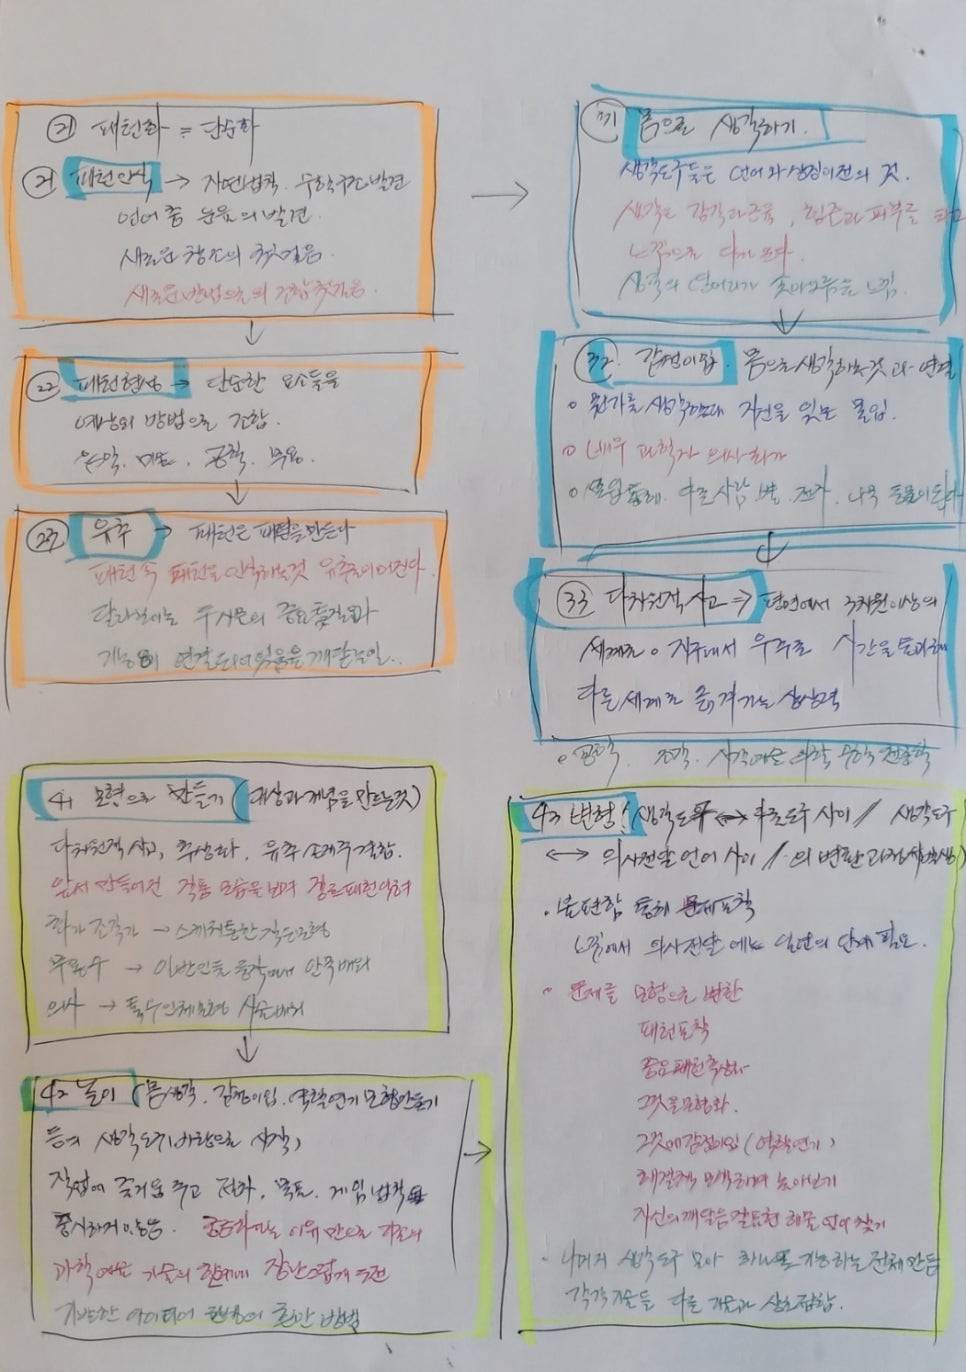 21 패턴화 = 단순화
21 패턴인식 → 자연법칙. 수학구조발견
언어 중 운율의 발견.
새로운 창조의 첫걸음.
새로운 방법으로의 조합 첫걸음.
22 패턴형성 → 단순한 요소들을
예상외 방법으로 조합.
음악. 미술. 공학. 무용.
23 유추 → 패턴은 패턴을 만든다
패턴 속 패턴을 인식하는것 유추로 이어진다.
달라보이는 두사물의 중요특질과
기능이 연결되어있음을 깨달는일..
31 몸으로 생각하기.
생각도구들은 언어와 상징이전의 것.
생각은 감각과 근육, 힘줄과 피부를 타고
느낌으로 다가온다.
생각의 언어라가 솟아오름을 느낌.
32. 감정이입. 몸으로 생각하는것과 연결
o 뭔가를 생각할때 자신을 잊는 몰입.
o 배우 과학자 의사 화가
o 몰입통해. 다른사람 되고. 전자. 나무 동물이된다
33 다차원적 사고 ⇒ 평면에서 3차원이상의
세계로 o 지구에서 우주로 시간을 통과해
다른세계로 옮겨가는 상상력
o 공학. 조각. 시각예술 의학 수학 천문학
41 모형으로 만들기 (대상과 개념을 만드는것)
다차원적 사고, 추상화, 유추 손재주 결합.
앞서 만들어진 작품 모습을 보며 결론패턴익혀
화가 조각가 → 스케치통한 작은모형
무용수 → 일반인들 동작에서 안무배워
의사 → 특수인체모형 시술배워
42 놀이 (몸생각. 감정이입. 역할연기 모형만들기
등의 생각도구 바탕으로 시작)
직업에 즐거움 주고 절차, 목표. 게임법칙
중시하게 않음. 좋아하는 이유 만으로 기존의
과학예술 기술의 한계에 장난스럽게 도전
기발한 아이디어 탄생에 흔한 방법
43 변형! (생각도구 ↔ 다른도구 사이 // 생각도구
↔ 의사전달언어 사이 // 의 변환과정
· 불편함 통해 문제포착
느낌에서 의사전달 에는 일련의 단계 필요.
o 문제를 모형으로 변환
패턴포착
중요패턴추상화
그것을모형화.
그것에감정이입 (역할연기)
해결책 모색하며 놀아보기
자신의깨달음잘표현 해줄 언어 찾기
· 나머지 생각도구 모아 하나로 기능하는 전체 만듬
각각기술들 다른 기술과 상호결합.